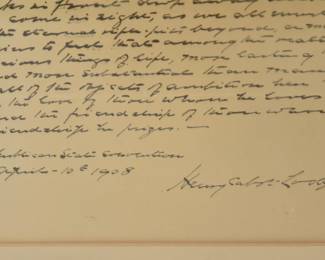 in front drop away
come in sight, as we all must
the eternal beyond,
to feel that among the realities
things of life, more lasting
more substantial than many
all of the objects of ambition here
the love of those whom he loves
and the friendship of those whose
friendship he prizes. —
Republican State Convention
April 10th 1908
Henry Cabot Lodge